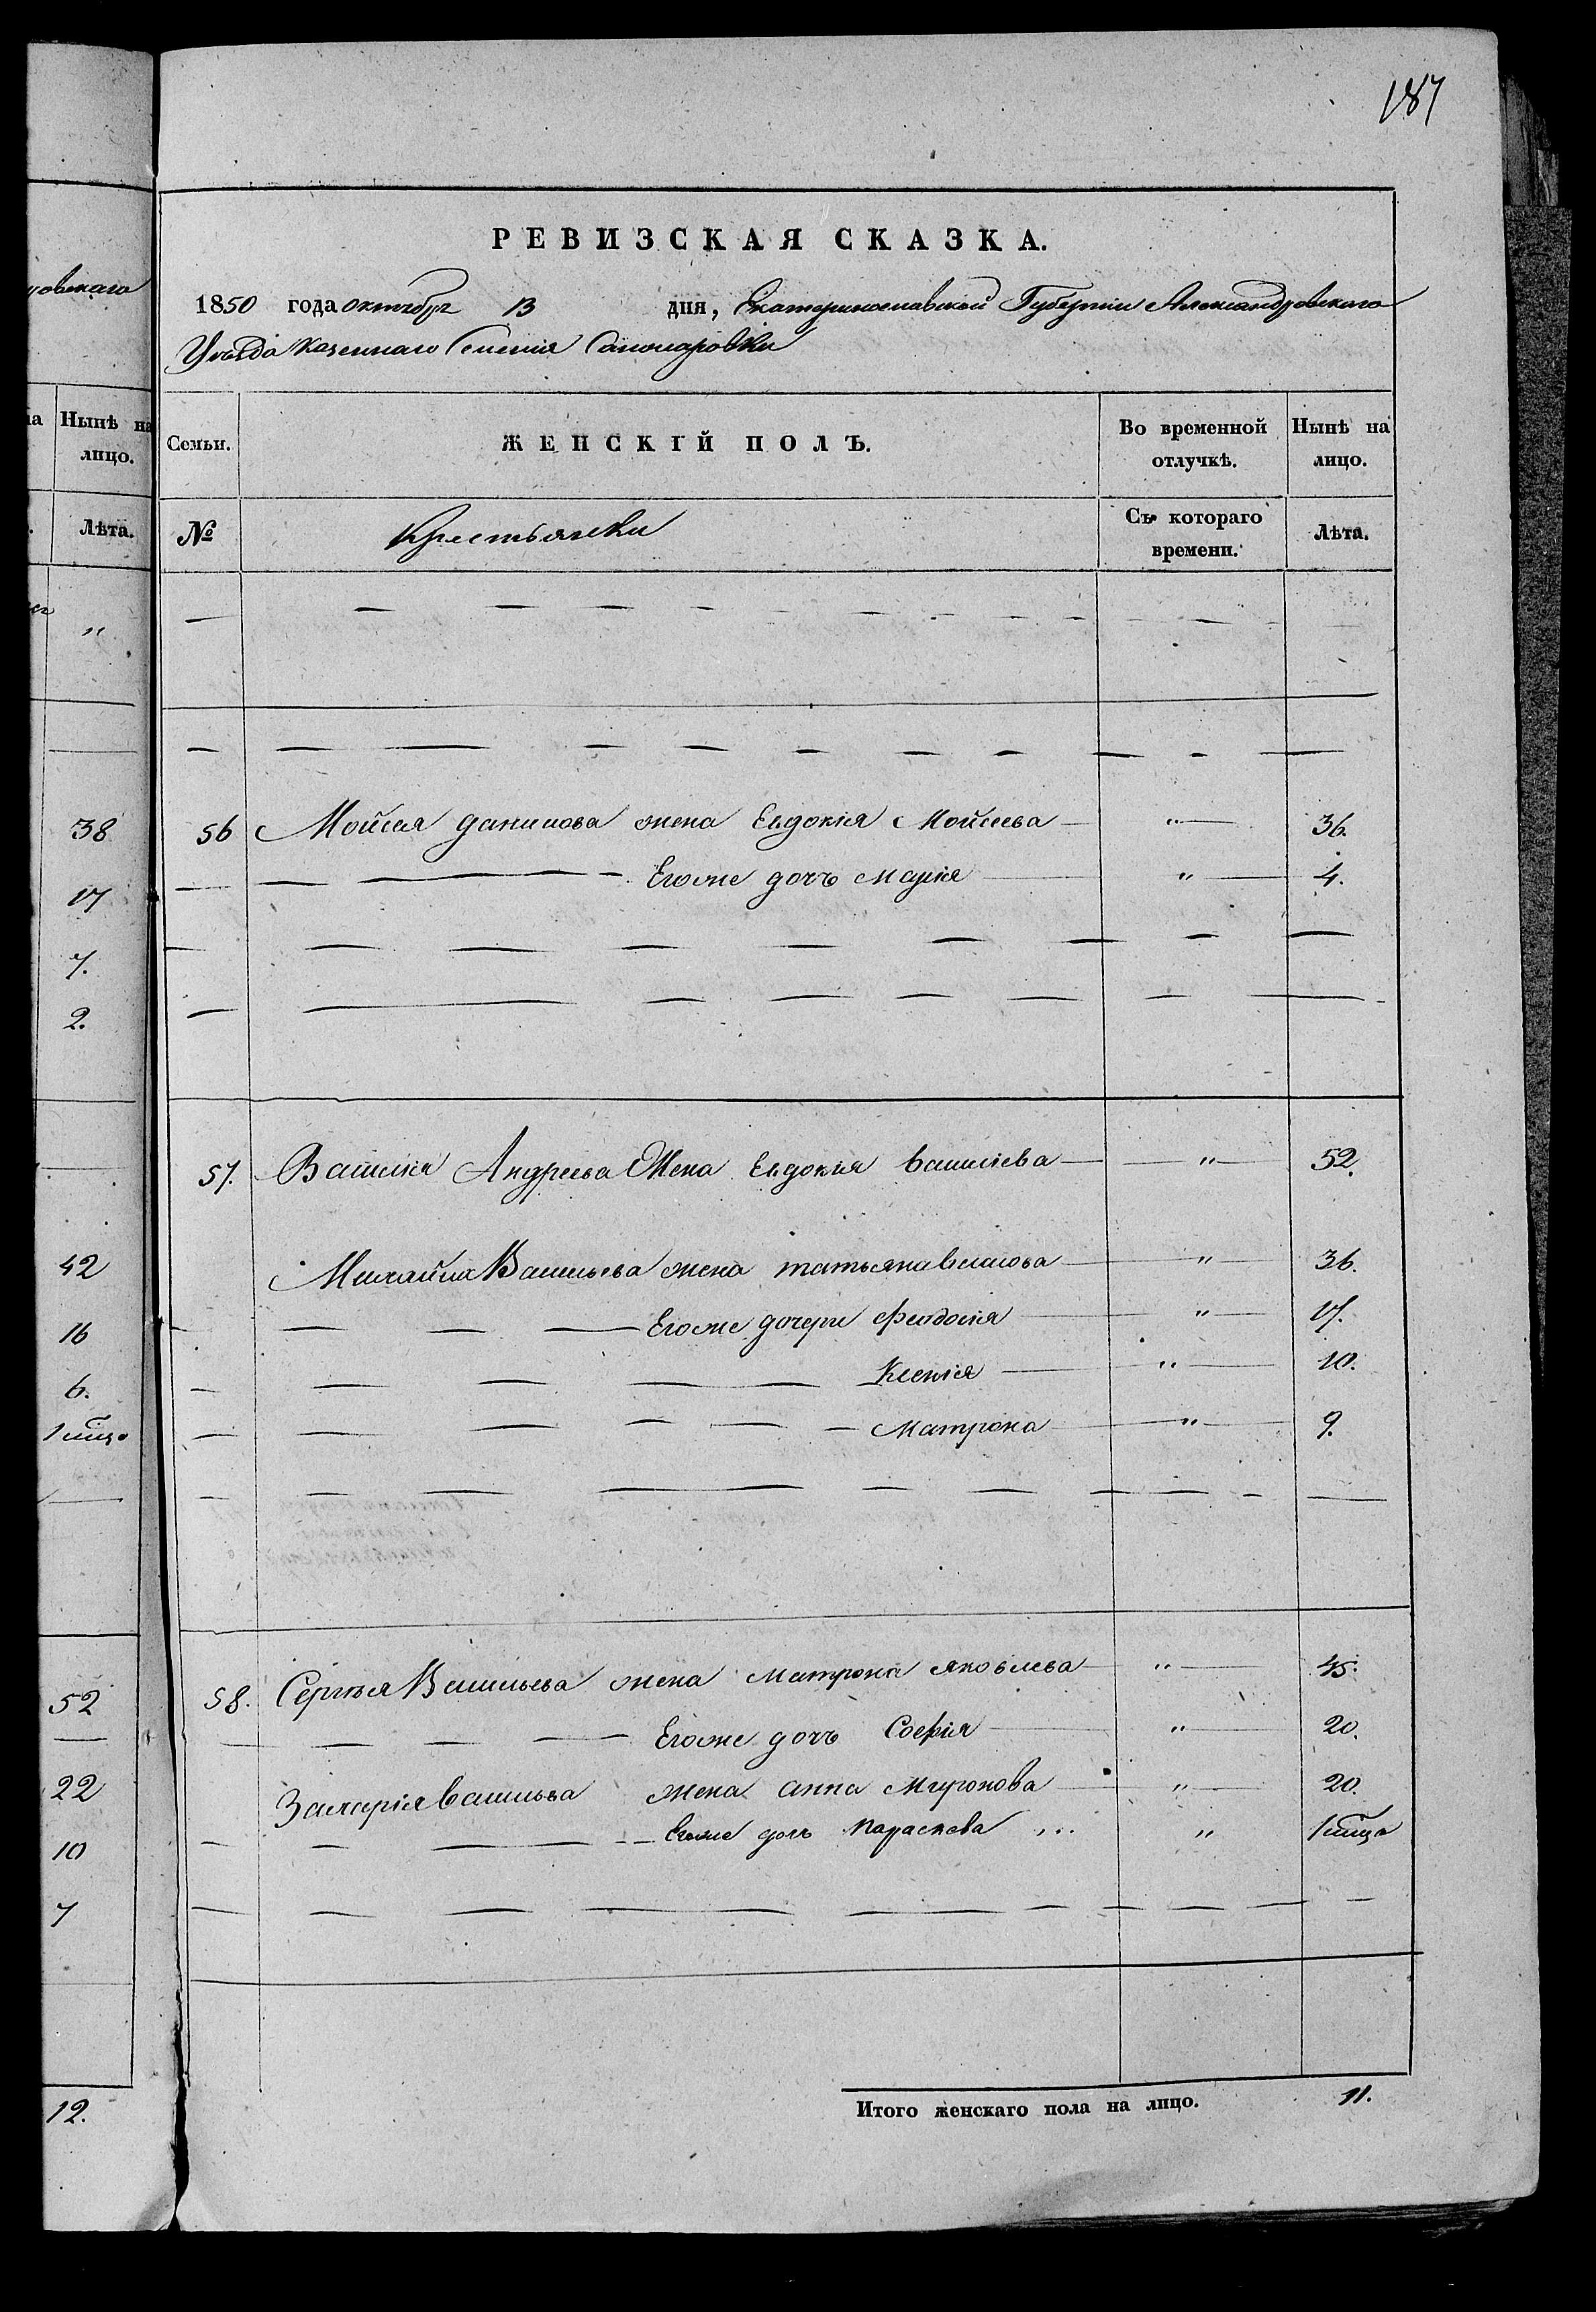 187
РЕВИЗСКАЯ СКАЗКА.
1850 года октября 13 дня, Екатеринославской Губерніи Александровскаго
Уѣзда Казеннаго Селенія
Семьи. ЖЕНСКІЙ ПОЛЪ. Во временной отлучкѣ. Нынѣ на лицо.
№ Крестьянки Съ котораго времени. Лѣта.
56 Мойсея данилова жена Евдокія Мойсеева — " — 36.
Егоже дочъ Марія — " — 4.
57. Василія Андреева Жена Евдокія василіева — " — 52.
Михайла Васильева жена татьяна власова — " — 36.
Егоже дочери Феодосія — " — 17.
Ксенія — " — 10.
Матрона — " — 9.
58. Сергѣя Васильева жена Матрона яковлева — " — 45.
Егоже дочъ Софія — " — 20.
Захарія васильва жена анна Миронова — " — 20.
Егоже дочъ Параскева ... " 1
Итого женскаго пола на лицо. 11.
Нынѣ на лицо.
Лѣта.
"
38
17
7.
2.
42
16
6.
1
52
22
10
7
12.